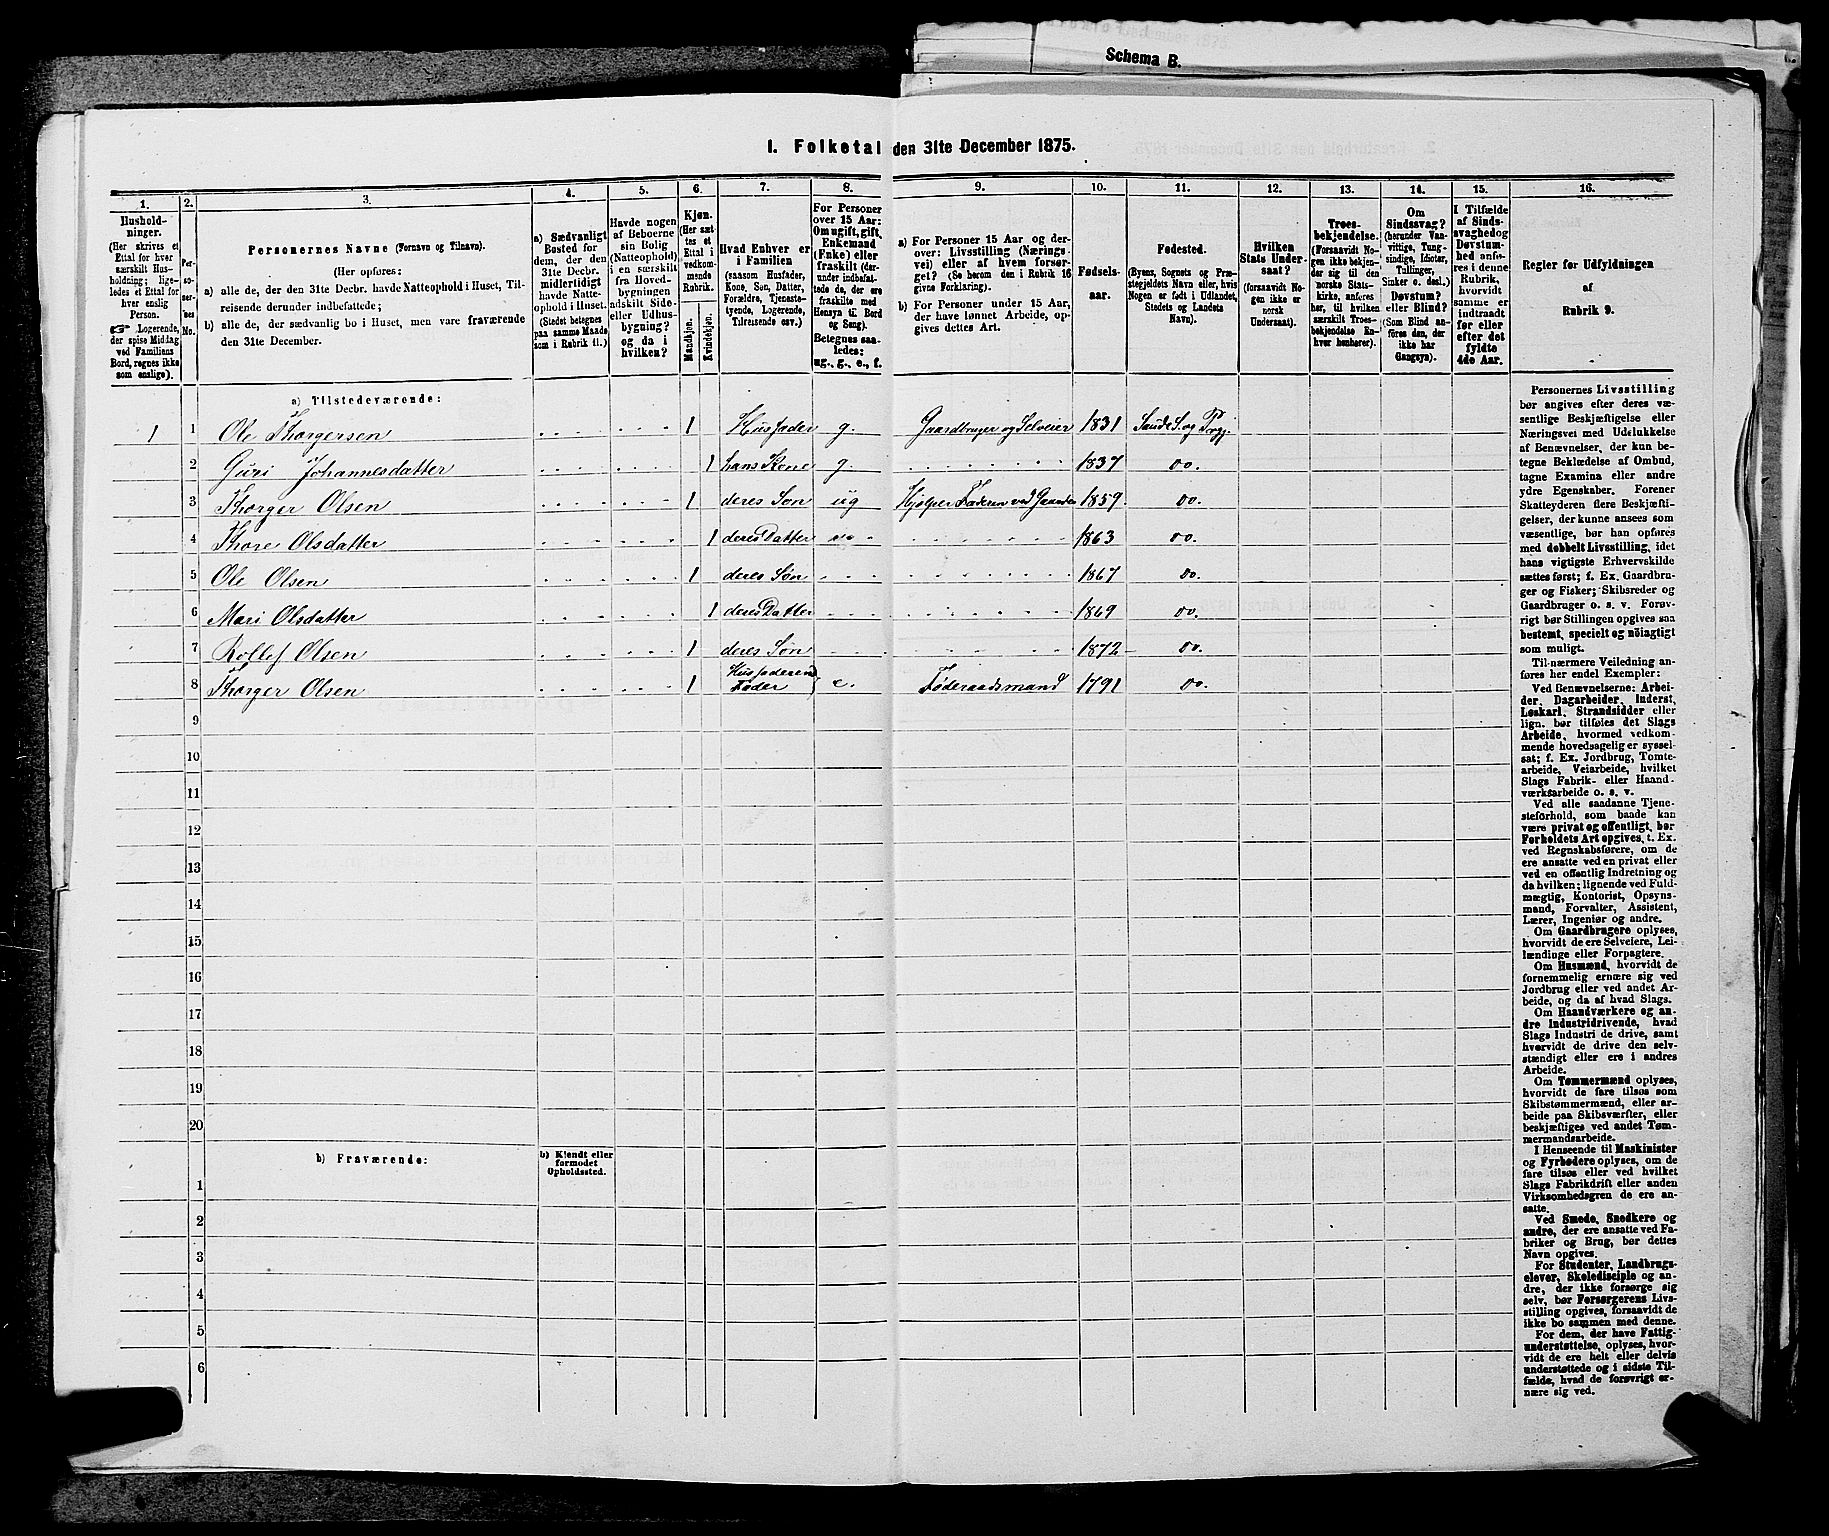 Schema B.
1. Folketal den 31te December 1875.
1. 2. 3. 4. 5. 6. 7. 8. 9. 10. 11. 12. 13. 14. 15. 16.
Hushold-
ninger.
(Her skrives et
Ettal for hver
særskilt Hus-
holdning; lige-
ledes et Ettal for
hver enslig
Person.
☞ Logerende,
der spise Middag
ved Familiens
Bord, regnes ikke
som enslige).
Per-
so-
ner-
nes
No.
Personernes Navne (Fornavn og Tilnavn).
(Her opføres:
a) alle de, der den 31te Decbr. havde Natteophold i Huset, Til-
reisende derunder indbefattede;
b) alle de, der sædvanlig bo i Huset, men vare fraværende
den 31te December.
a) Sædvanligt
Bosted for
dem, der den
31te Decbr.
midlertidigt
havde Natte-
ophold i Huset.
(Stedet betegnes
paa samme Maade
som i Rubrik 11.)
Havde nogen
af Beboerne
sin Bolig
(Natteophold)
i en særskilt
fra Hoved-
bygningen
adskilt Side-
eller Udhus-
bygning?
og da i
hvilken?
Kjøn.
(Her sæt-
tes et
Ettal i
vedkom-
mende
Rubrik.
Mandkjøn.
Kvindekjøn.
Hvad Enhver er
i Familien
(saasom Husfader,
Kone, Søn, Datter,
Forældre, Tjeneste-
tyende, Logerende,
Tilreisende osv.)
For Personer
over 15 Aar:
Om ugift, gift,
Enkemand
(Enke) eller
fraskilt (der-
under indbefat-
tede de, der ere
fraskilte med
Hensyn til Bord
og Seng).
Betegnes saa-
ledes:
ug., g., e., f.
a) For Personer 15 Aar og der-
over: Livsstilling (Nærings-
vei) eller af hvem forsør-
get? (Se herom den i Rubrik 16
givne Forklaring).
b) For Personer under 15 Aar,
der have lønnet Arbeide, op-
gives dettes Art.
Fødsels-
aar.
Fødested.
(Byens, Sognets og Præ-
stegjeldets Navn eller, hvis
Nogen er født i Udlandet,
Stedets og Landets
Navn).
Hvilken
Stats Under-
saat?
(forsaavidt No-
gen ikke er
norsk
Undersaat).
Troes-
bekjendelse.
(Forsaavidt No-
gen ikke bekjen-
der sig til den
norske Stats-
kirke, anføres
her, til hvilken
særskilt Troes-
bekjendelse En-
hver henhører).
Om
Sindssvag?
(herunder Van-
vittige, Tung-
sindige, Idioter,
Tullinger,
Sinker o. desl.)
Døvstum?
eller Blind?
(Som Blind an-
føres den, der
ikke har
Gangsyn).
I Tilfælde
af Sinds-
svaghed og
Døvstum-
hed anfø-
res i denne
Rubrik,
hvorvidt
samme er
indtraadt
før eller
efter det
fyldte
4de Aar.
Regler for Udfyldningen
af
Rubrik 9.
a) Tilstedeværende:
1 1 Ole Thorgersen 1 Husfader g. Gaardbruger og Selveier 1831 Saude S. og Prgj.
2 Guri Johannesdatter 1 hans Kone g. 1837 do.
3 Thorger Olsen 1 deres Søn ug Hjælper Faderen ved Gaarden 1859 do.
4 Thore Olsdatter 1 deres Datter 1863 do.
5 Ole Olsen 1 deres Søn 1867 do.
6 Mari Olsdatter 1 deres Datter 1869 do.
7 Rollef Olsen 1 deres Søn 1872 do.
8 Thorger Olsen 1 Husfaderens Fader e. Føderaadsmand 1791 do.
9
10
11
12
13
14
15
16
17
18
19
20
b) Fraværende:
b) Kjendt eller
formodet
Opholdssted.
1
2
3
4
5
6
Personernes Livsstilling
bør angives efter deres væ-
sentlige Beskjæftigelse eller
Næringsvei med Udelukkelse
af Benævnelser, der kun be-
tegne Beklædelse af Ombud,
tagne Examina eller andre
ydre Egenskaber. Forener
Skatteyderen flere Beskjæfti-
gelser, der kunne ansees som
væsentlige, bør han opføres
med dobbelt Livsstilling, idet
hans vigtigste Erhvervskilde
sættes først; f. Ex. Gaardbru-
ger og Fisker; Skibsreder og
Gaardbruger o. s. v. Forøv-
rigt bør Stillingen opgives saa
bestemt, specielt og nöiagtigt
som muligt.
Til nærmere Veiledning an-
føres her endel Exempler:
Ved Benævnelserne: Arbei-
der, Dagarbeider, Inderst,
Løskarl, Strandsidder eller
lign. bør tilføies det Slags
Arbeide, hvormed vedkom-
mende hovedsagelig er syssel-
sat; f. Ex. Jordbrug, Tomte-
arbeide, Veiarbeide, hvilket
Slags Fabrik- eller Haand-
værksarbeide o. s. v.
Ved alle saadanne Tjene-
steforhold, som baade kan
være privat og offentligt, bør
Forholdets Art opgives, t. Ex.
ved Regnskabsførere, om de
ere ansatte ved en privat eller
ved en offentlig Indretning og
da hvilken; lignende ved Fuld-
mægtig, Kontorist, Opsyns-
mand, Forvalter, Assistent,
Lærer, Ingeniør og andre.
Om Gaardbrugere oplyses,
hvorvidt de ere Selveiere, Lei-
lændinge eller Forpagtere.
Om Husmænd, hvorvidt de
fornemmelig ernære sig ved
Jordbrug eller ved andet Ar-
beide, og da af hvad Slags.
Om Haandværkere og an-
dre Industridrivende, hvad
Slags Industri de drive, samt
hvorvidt de drive den selv-
stændigt eller ere i andres
Arbeide.
Om Tømmermænd oplyses,
hvorvidt de fare tilsøs som
Skibstømmermænd, eller ar-
beide paa Skibsværfter, eller
beskjæftiges ved andet Tøm-
mermandsarbeide.
I Henseende til Maskinister
og Fyrbødere oplyses, om de
fare tilsøs eller ved hvilket
Slags Fabrikdrift eller anden
Virksomhedsgren de ere an-
satte.
Ved Smede, Snedkere og
andre, der ere ansatte ved Fa-
briker og Brug, bør dettes
Navn opgives.
For Studenter, Landbrugs-
elever, Skoledisciple og an-
dre, der ikke forsørge sig
selv, bør Forsørgerens Livs-
stilling opgives, forsaavidt de
ikke bo sammen med denne.
For dem, der have Fattig-
understøttelse, oplyses, hvor-
vidt de ere helt eller delvis
understøttede og i sidste Til-
fælde, hvad de forøvrigt er-
nære sig ved.